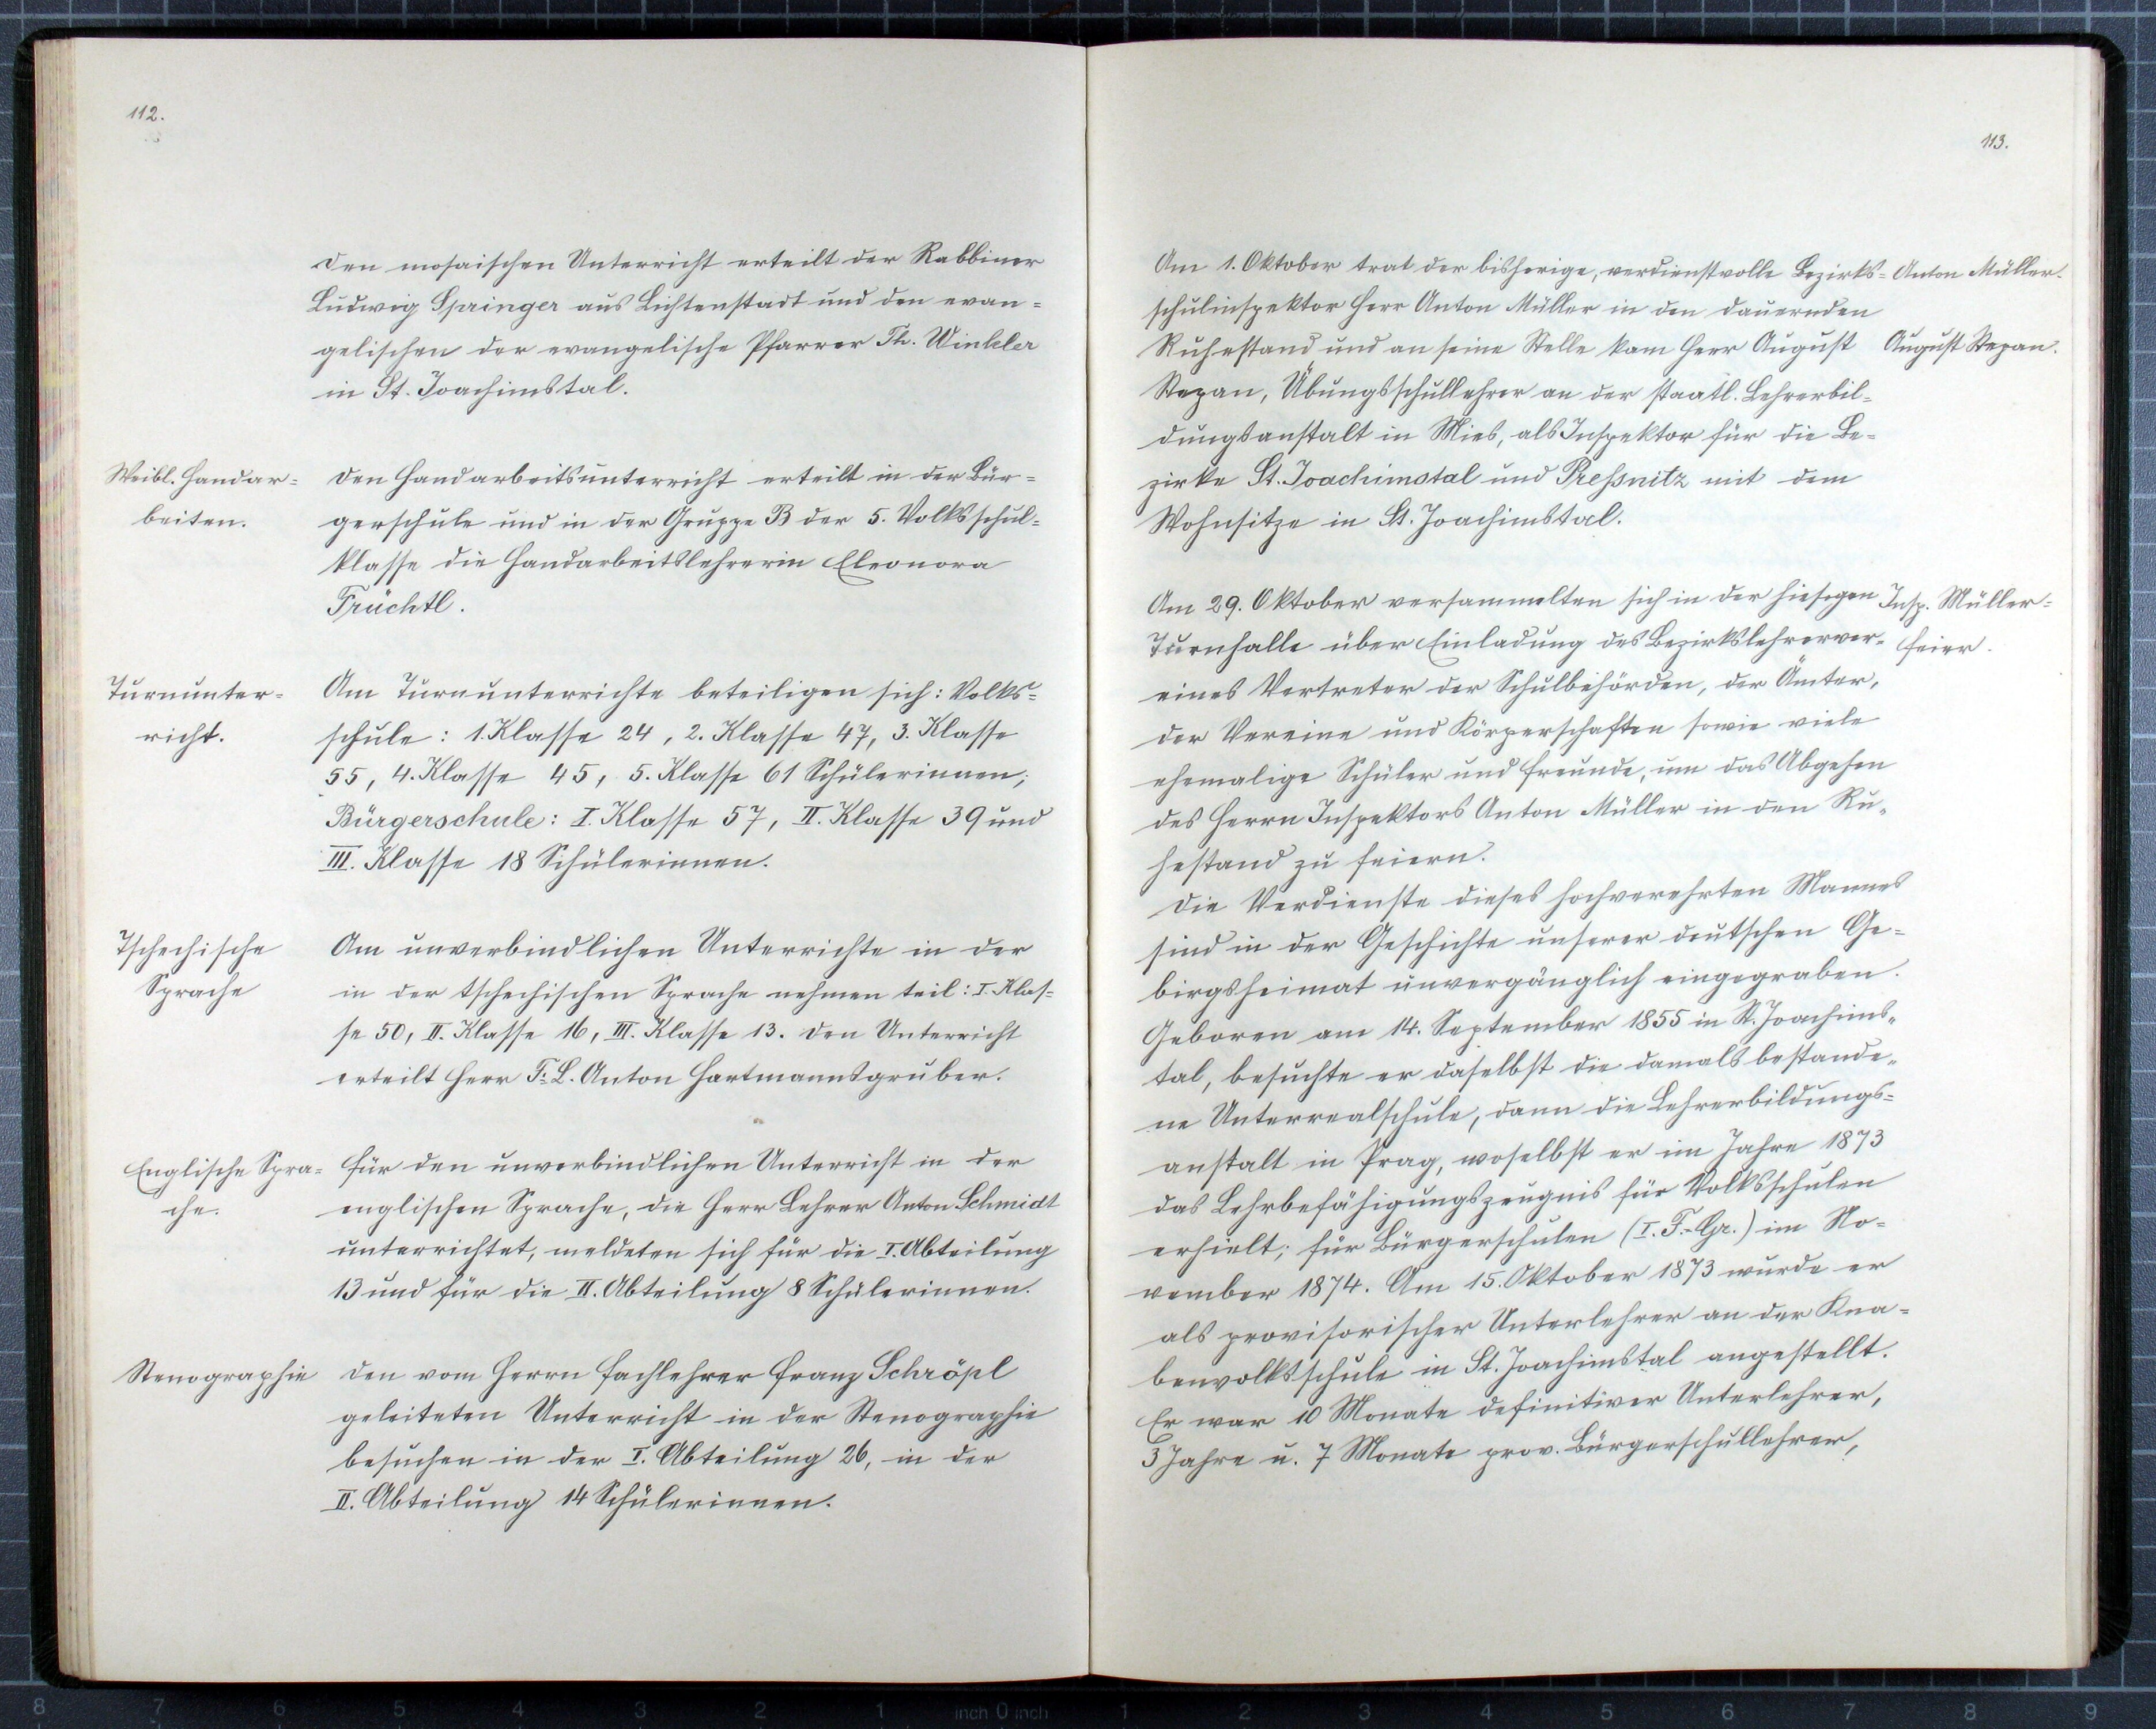 112.
Den mosaischen Unterricht erteilt der Rabbiner
Ludwig Springer aus Lichtenstadt und den evan=
gelischen der evangelische Pfarrer Th. Winkler
in St. Joachimstal.
Weibl. Handar=
beiten.
Den Handarbeitsunterricht erteilt in der Bür=
gerschule und in der Gruppe B der 5. Volksschul=
klasse die Handarbeitslehrerin Eleonora
Früchtl.
Turnunter=
richt.
Am Turnunterrichte beteiligen sich: Volks=
schule: 1. Klasse 24, 2. Klasse 47, 3. Klasse
55, 4. Klasse 45, 5. Klasse 61 Schülerinnen;
Bürgerschule: I. Klasse 57, II. Klasse 39 und
III. Klasse 18 Schülerinnen.
Tschechische
Sprache
Am unverbindlichen Unterrichte in der
in der tschechischen Sprache nehmen teil: I. Klas=
se 50, II. Klasse 16, III. Klasse 13. Den Unterricht
erteilt Herr F.-L. Anton Hartmannsgruber.
Englische Spra=
che.
Für den unverbindlichen Unterricht in der
englischen Sprache, die Herr Lehrer Anton Schmidt
unterrichtet, meldeten sich für die I. Abteilung
13 und für die II. Abteilung 8 Schülerinnen.
Stenographie
Den vom Herrn Fachlehrer Franz Schröpl
geleiteten Unterricht in der Stenographie
besuchen in der I. Abteilung 26, in der
II. Abteilung 14 Schülerinnen.
113.
Am 1. Oktober trat der bisherige, verdienstvolle Bezirks=
schulinspektor Herr Anton Müller in den dauernden
Ruhestand und an seine Stelle kam Herr August
Stepan, Übungsschullehrer an der staatl. Lehrerbil=
dungsanstalt in Mies, als Inspektor für die Be=
zirke St. Joachimstal und Preßnitz mit dem
Wohnsitze in St. Joachimstal.
Anton Müller.
August Stepan.
Am 29. Oktober versammelten sich in der hiesigen
Turnhalle über Einladung des Bezirkslehrerver=
eines Vertreter der Schulbehörden, der Ämter,
der Vereine und Körperschaften sowie viele
ehemalige Schüler und Freunde, um das Abgehen
des Herrn Inspektors Anton Müller in den Ru=
hestand zu feiern.
Insp. Müller=
Feier.
Die Verdienste dieses hochverehrten Mannes
sind in der Geschichte unserer deutschen Ge=
birgsheimat unvergänglich eingegraben.
Geboren am 14. September 1855 in St. Joachims=
tal, besuchte er daselbst die damals bestande=
ne Unterrealschule, dann die Lehrerbildungs=
anstalt in Prag, woselbst er im Jahre 1873
das Lehrbefähigungszeugnis für Volksschulen
erhielt; für Bürgerschulen (I. F.-Gr.) im No=
vember 1874. Am 15. Oktober 1873 wurde er
als provisorischer Unterlehrer an der Kna=
benvolksschule in St. Joachimstal angestellt.
Er war 10 Monate definitiver Unterlehrer,
3 Jahre u. 7 Monate prov. Bürgerschullehrer,
8 7 6 5 4 3 2 1 inch 0 inch 1 2 3 4 5 6 7 8 9